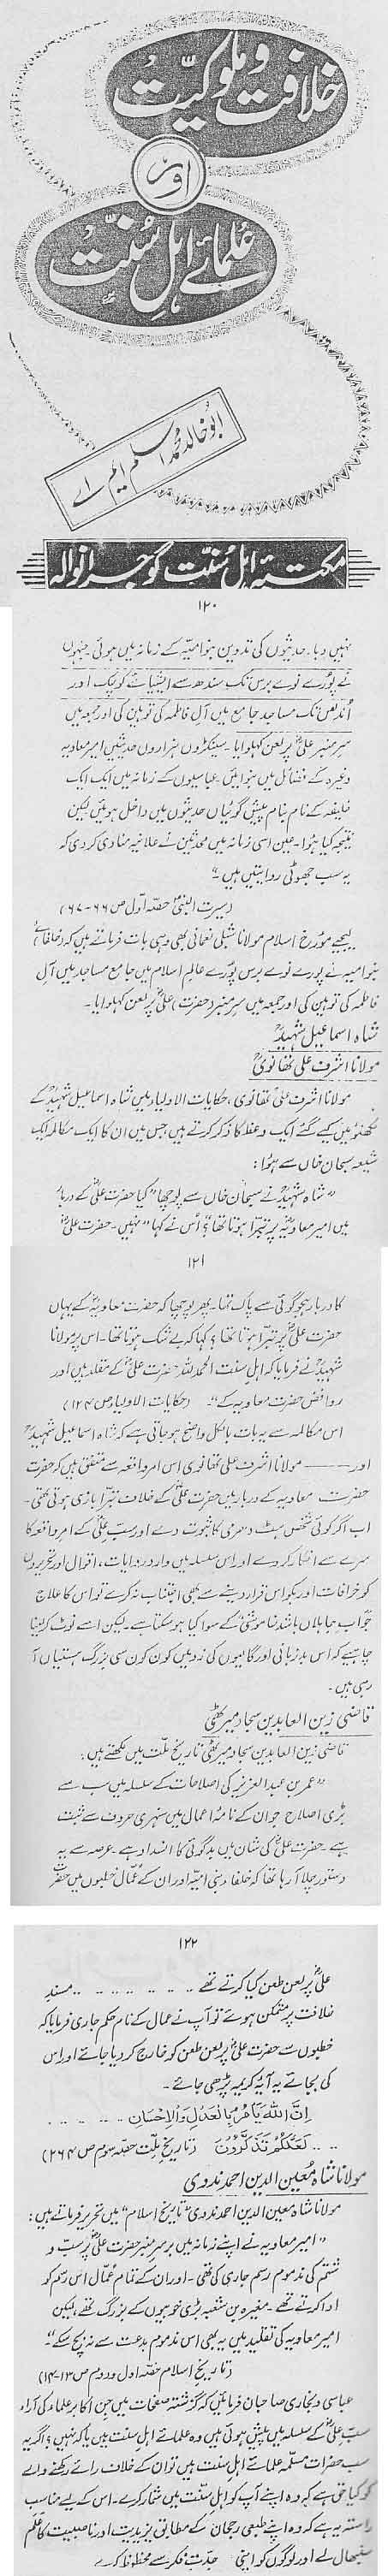 خلافت و ملوکیّت
اور
عُلمائے اہلِ سُنّت
ابُو خالد محمد اسلم ایم اے
مکتبۂ اہلِ سُنّت گوجرانوالہ
۱۲۰
نہیں دبا۔ حدیثوں کی تدوین بنو امیّہ کے زمانہ میں ہوئی۔ جنہوں
نے پُورے نوے برس تک سندھ سے ایشیائے کوچک اور
اُندلس تک مساجد جامع میں آلِ فاطمہ کی توہین کی اور جمعہ میں
سرِ منبر علیؓ پر لعن کہلوایا۔ سینکڑوں ہزاروں حدیثیں امیر معاویہ
وغیرہ کے فضائل میں بنوائیں۔ عباسیوں کے زمانہ میں ایک ایک
خلیفہ کے نام بنام پیشین گوئیاں حدیثوں میں داخل ہوئیں لیکن
نتیجہ کیا ہُوا۔ عین اسی زمانہ میں محدثین نے علانیہ منادی کر دی کہ
یہ سب جھوٹی روایتیں ہیں۔“
(سیرت النبیؐ حصّہ اوّل ص ۶۶-۶۷)
لیجیے مؤرخِ اسلام مولانا شبلی نعمانی بھی وہی بات فرماتے ہیں کہ (خلفائے)
بنو امیہ نے پُورے نوے برس پُورے عالمِ اسلام میں جامع مساجد میں آلِ
فاطمہ کی توہین کی اور جمعہ میں سرِ منبر (حضرت) علیؓ پر لعن کہلوایا۔
شاہ اسماعیل شہیدؒ
مولانا اشرف علی تھانویؒ
مولانا اشرف علی تھانوی، حکایات الاولیاء میں شاہ اسماعیل شہیدؒ کے
لکھنؤ میں کیے گئے ایک وعظ کا ذکر کرتے ہیں جس میں ان کا ایک مکالمہ ایک
شیعہ سبحان خاں سے ہُوا:
”شاہ شہیدؒ نے سبحان خاں سے پوچھا ”کیا حضرت علیؓ کے دربار
میں امیر معاویہؓ پر تبرّا ہوتا تھا؟ اُس نے کہا ”نہیں۔ حضرت علیؓ
۱۲۱
کا دربار ہجو گوئی سے پاک تھا۔ پھر پوچھا کہ حضرت معاویہؓ کے یہاں
حضرت علیؓ پر تبرّا ہوتا تھا؟ کہا کہ بے شک ہوتا تھا۔ اس پر مولانا
شہیدؒ نے فرمایا کہ اہلِ سنت الحمدللہ حضرت علیؓ کے مقلد ہیں اور
روافض حضرت معاویہ کے“۔ (حکایات الاولیاء ص ۱۲۴)
اس مکالمہ سے یہ بات بالکل واضح ہو جاتی ہے کہ شاہ اسماعیل شہیدؒ
اور ــــــ مولانا اشرف علی تھانوی اس امرِ واقعہ سے متفق ہیں کہ حضرت
حضرت معاویہ کے دربار میں حضرت علیؓ کے خلاف تبرّا بازی ہوتی تھی۔
اب اگر کوئی شخص ہٹ دھرمی کا ثبوت دے اور سبِّ علیؓ کے امرِ واقعہ کا
سرے سے انکار کر دے اور اس سلسلہ میں وارد روایات، اقوال اور تحریروں
کو خرافات اور بکواس قرار دینے سے بھی اجتناب نہ کرے تو اس کا علاج
جوابِ جاہلاں باشد خاموشی کے سوا کیا ہو سکتا ہے۔ لیکن اسے نوٹ کر لینا
چاہیے کہ اس بدزبانی اور گالیوں کی زد میں کون کون سی بزرگ ہستیاں آ
رہی ہیں۔
قاضی زین العابدین سجاد میرٹھی
قاضی زین العابدین سجاد میرٹھی تاریخِ ملّت میں لکھتے ہیں:
”عمر بن عبدالعزیز کی اصلاحات کے سلسلہ میں سب سے
بڑی اصلاح جو ان کے نامۂ اعمال میں سنہری حروف سے ثبت
ہے۔ حضرت علیؓ کی شان میں بدگوئی کا انسداد ہے۔ عرصہ سے یہ
دستور چلا آ رہا تھا کہ خلفاء بنی امیّہ اور ان کے عُمّال خطبوں میں حضرت
۱۲۲
علیؓ پر لعن طعن کیا کرتے تھے ......... مسندِ
خلافت پر متمکن ہوئے تو آپ نے عمال کے نام حکم جاری فرمایا کہ
خطبوں سے حضرت علیؓ پر لعن طعن کو خارج کر دیا جائے اور اس
کی بجائے یہ آیۂ کریمہ پڑھی جائے۔
اِنَّ اللّٰہَ یَاْمُرُ بِالْعَدْلِ وَالْاِحْسَانِ .........
... لَعَلَّکُمْ تَذَکَّرُوْنَ (تاریخِ ملّت حصّہ سوم ص ۲۶۴)
مولانا شاہ مُعین الدین احمد ندوی
مولانا شاہ معین الدین احمد ندوی ”تاریخِ اسلام“ میں تحریر فرماتے ہیں:
”امیر معاویہ نے اپنے زمانہ میں برسرِ منبر حضرت علیؓ پر سبّ و
شتم کی مذموم رسم جاری کی تھی۔ اور ان کے تمام عُمّال اس رسم کو
ادا کرتے تھے۔ مغیرہ بن شعبہ بڑی خوبیوں کے بزرگ تھے، لیکن
امیر معاویہ کی تقلید میں یہ بھی اس مذموم بدعت سے نہ بچ سکے“۔
(تاریخِ اسلام حصّہ اول و دوم ص ۱۳-۱۴)
عباسی و بخاری صاحبان فرمائیں کہ گزشتہ صفحات میں جن اکابر علماء کی آراء
سبِّ علیؓ کے سلسلہ میں پیش ہوئی ہیں وہ علمائے اہلِ سنت ہیں یا کہ نہیں؟ اگر یہ
سب حضرات مسلّمہ علمائے اہلِ سنت ہیں تو ان کے خلاف رائے رکھنے والے
کو کیا حق ہے کہ وہ اپنے آپ کو اہلِ سُنّت میں شمار کرے۔ اس کے لیے مناسب
راستہ یہ ہے کہ وہ اپنے طبعی رجحان کے مطابق یزیدیت اور ناصبیت کا عَلَم
سنبھال لے اور لوگوں کو اپنی جدّتِ فکر سے محظوظ کرے